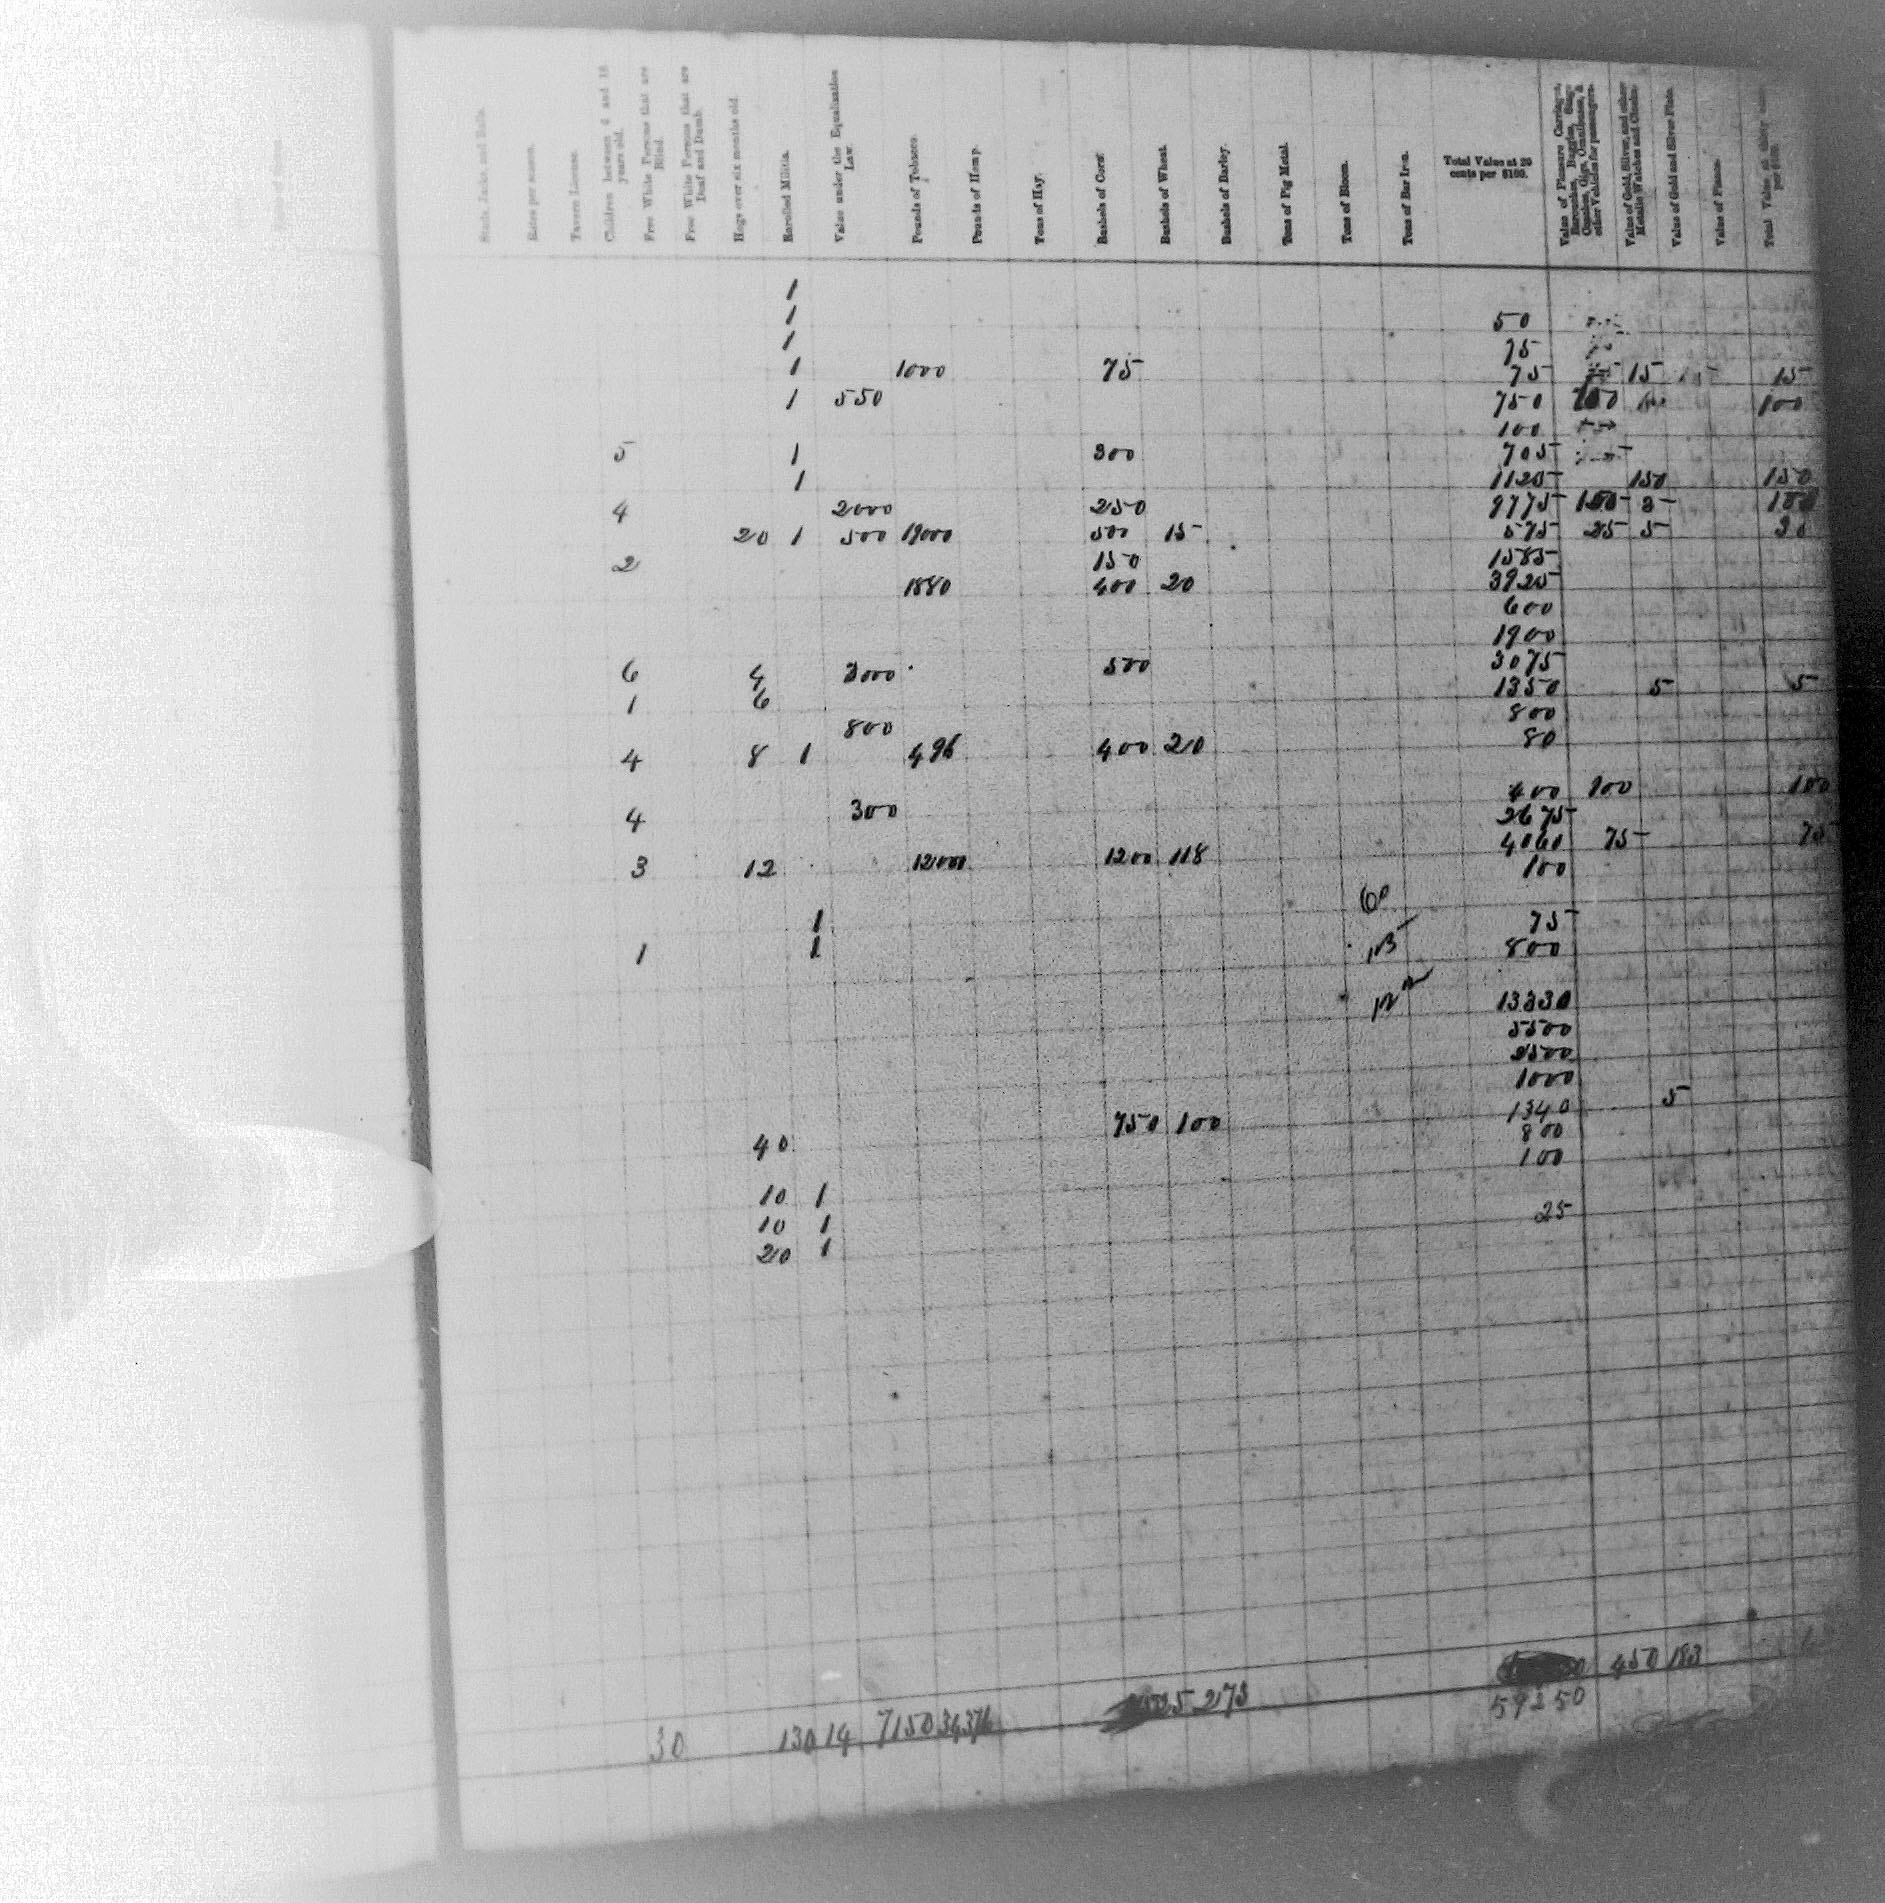 Studs, Jacks and Bulls.
Rates per season.
Tavern License.
Children between 6 and 18 years old.
Free White Persons that are Blind.
Free White Persons that are Deaf and Dumb.
Hogs over six months old.
Enrolled Militia.
Value under the Equalization Law.
Pounds of Tobacco.
Pounds of Hemp.
Tons of Hay.
Bushels of Corn.
Bushels of Wheat.
Bushels of Barley.
Tons of Pig Metal.
Tons of Bloom.
Tons of Bar Iron.
Total Value at 20 cents per $100.
Value of Pleasure Carriages, Barouches, Buggies, Stage Coaches, Gigs, Omnibusses, & other Vehicles for passengers.
Value of Gold, Silver, and other Metalic Watches and Clocks.
Value of Gold and Silver Plate.
Value of Pianos.
Total Value at thirty cents per $100.
1
1 50
1 75
1 1000 75 75 15 15
1 550 750 100 100
100
5 1 300 705
1 1120 150 150
4 2000 250 9775 100 3 100
20 1 500 19000 500 15 575 25 5 30
2 150 1585
1880 400 20 3925
600
1900
6 4 3000 500 3075
1 6 1350 5 5
800 800
4 8 1 496 400 20 80
400 100 100
4 300 2675
4060 75 75
3 12 12000 1200 118 100
60
1 75
1 1 800
13330
5500
2500
1000
1340 5
40 750 100 800
100
10 1
10 1 25
20 1
450 183
30 130 14 7150 34376 273 59250